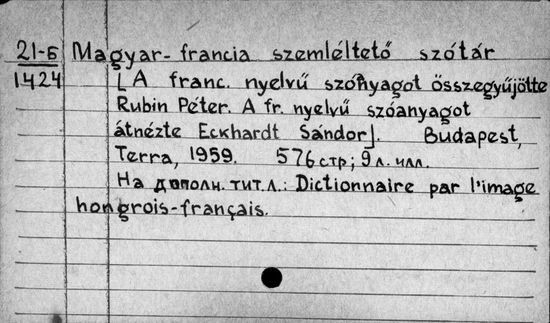 21-Б Magyar-francia szemléltető szótár
1424 [A franc. nyelvű szóhyagot összegyűjötte
Rubin Péter. A fr. nyelvű szóanyagot
átnézte Eckhardt Sándor]. Budapest,
Terra, 1959. 576 стр; 9 л. илл.
На дополн. тит. л.: Dictionnaire par l'image
hongrois-français.